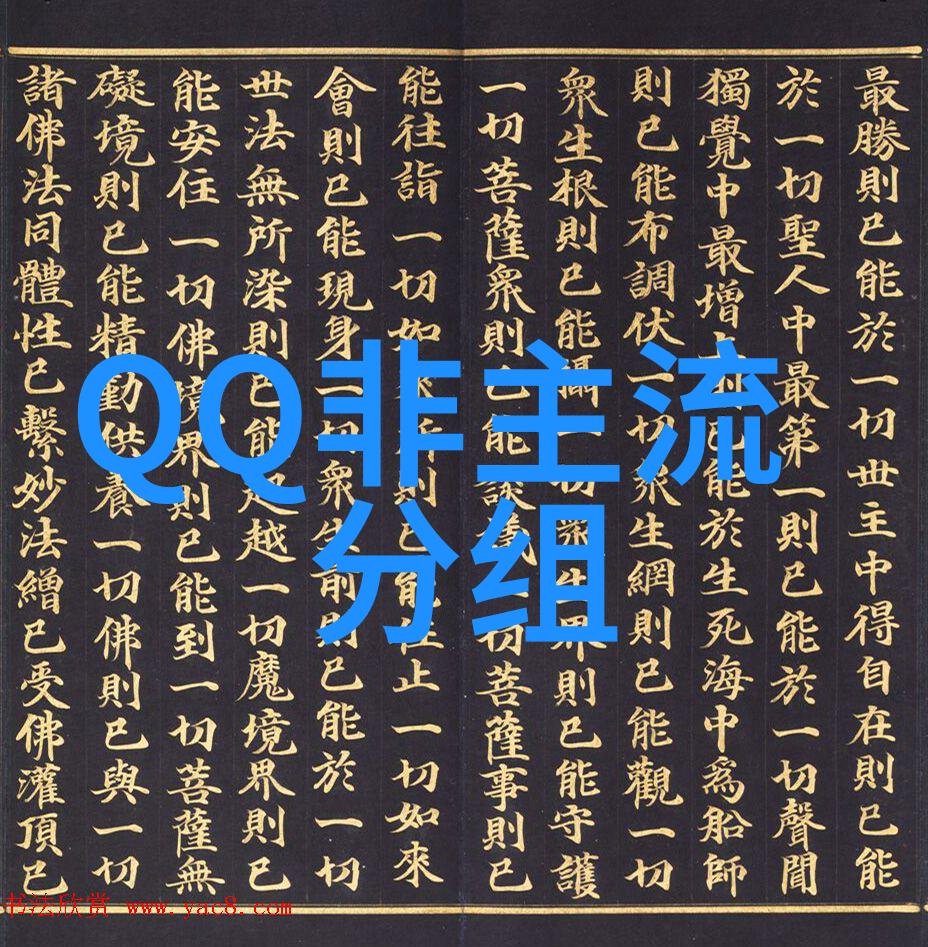 最勝則已能於一切世主中得自在則已能
於一切聖人中最第一則已能於一切聲聞
獨覺中最增上則已能於生死海中為船師
則已能布調伏一切眾生網則已能觀一切
眾生根則已能攝一切眾生界則已能守護
一切菩薩眾則已能談議一切菩薩事則已
能往詣一切如來所則已能住止一切如來
會則已能現身一切眾生前則已能於一切
世法無所染則已能超越一切魔境界則已
能安住一切佛境界則已能到一切菩薩無
礙境則已能精勤供養一切佛則已與一切
諸佛法同體性已繫妙法繒已受佛灌頂已
QQ非主流
分组
书法欣赏 www.yac8.com